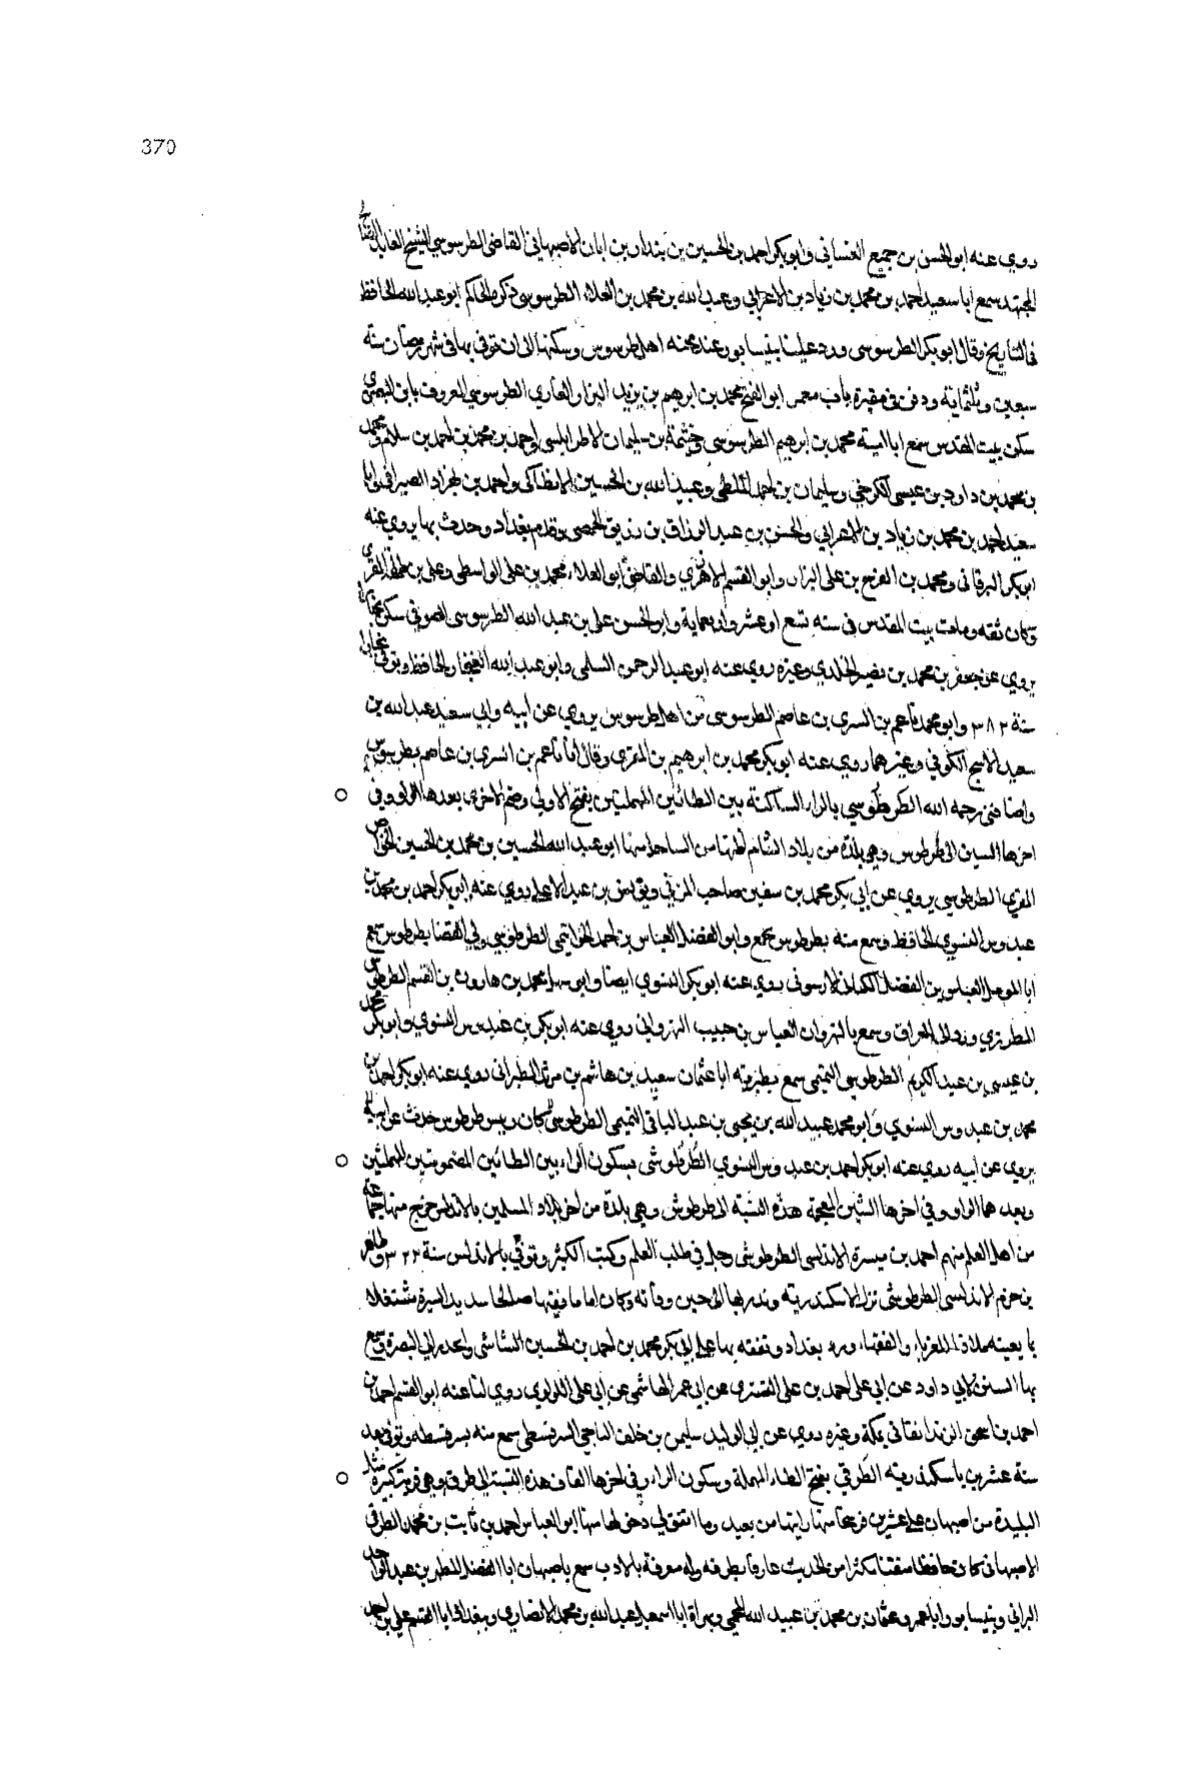 370
روي عنه ابو الحسن بن جميع الغساني وابو بكر احمد بن الحسين بن بندار بن ابان الاصبهاني القاضي الطرسوسي الشيخ العابد
المجتهد سمع ابا سعيد احمد بن محمد بن زياد بن الاعرابي وعبد الله بن محمد بن العلاء الطرسوسي ذكره الحاكم ابو عبد الله الحافظ
في التاريخ وقال ابو بكر الطرسوسي ورد علينا بنيسابور عند محنه اهل طرسوس وسكنها الى ان توفي بها في شهر رمضان سنة
سبعين وثلثماية ودفن في مقبرة باب معمر ابو الفتح محمد بن ابرهيم بن يزيد البزار الغازي الطرسوسي المعروف بابن البصري
سكن بيت المقدس سمع ابا امية محمد بن ابرهيم الطرسوسي وخيثمة بن سليمان الاطرابلسي واحمد بن محمد بن احمد بن سلام ومحمد
بن محمد بن داود بن عيسى الكرجي وسليمان بن احمد الملطي وعبيد الله بن الحسين الانطاكي واحمد بن بهزاد الصيرافي وابا
سعيد احمد بن محمد بن زياد بن الاعرابي والحسن بن عبد الرزاق بن زريق الحمصي وقدم بغداد وحدث بها يروي عنه
ابو بكر البرقاني ومحمد بن الفرج بن على البزار وابو القسم الازهري والقاضي ابو العلاء محمد بن على الواسطى وعلى بن طلحة المقرى
وكان ثقه ومات ببيت المقدس في سنه تسع او عشر واربعماية وابو الحسن على بن عبد الله الطرسوسى الصوفي سكن بخارا
يروي عن جعفر بن محمد بن نصير الخلدي وغيره روي عنه ابو عبد الرحمن السلمي وابو عبد الله الغنجار الحافظ وتوفي بخارا
سنة ٣٨٢ وابو محمد ناعم بن السري بن عاصم الطرسوسى من اهل طرسوس يروي عن ابيه وابي سعيد عبد الله بن
سعيد الاشج الكوفي وغيرهما روي عنه ابو بكر محمد بن ابرهيم بن المقرى وقال انا ناعم بن السرى بن عاصم بطرسوس
الطرطوسي بالراء الساكنة بين الطائين المهملتين بفتح الاولى وضم الاخرى بعدها الواو وفي
اخرها السين الى طرطوس وهي بلدة من بلاد الشام من الساحل منها ابو عبد الله الحسين بن محمد بن الحسين الخواص
المقرى الطرطوسي يروي عن ابي بكر محمد بن سفين صاحب المزني ويونس بن عبد الاعلى روي عنه ابو بكر احمد بن محمد بن
عبدوس النسوي الحافظ وسمع منه بطرطوس وابو الفضل العباس بن احمد الخواتيمي الطرطوسي ولي القضا بطرطوس سمع
ابا العباس بن الفضل الارسوفى روي عنه ابو بكر النسوي ايضا وابو سهل محمد بن هارون بن القسم الطرطوسي
المطرزي ورد الى العراق وسمع بالنهروان العباس بن حبيب النهرواني روي عنه ابو بكر بن عبدوس النسوي وابو بكر محمد
بن عيسى بن عبد الكريم الطرطوسي التميمي سمع بطبرية ابا عثمان سعيد بن هاشم بن مرثد الطبراني روي عنه ابو بكر احمد بن
محمد بن عبدوس النسوي وابو محمد عبيد الله بن يحيى بن عبد الباقي التميمي الطرطوسي كان رييس طرطوس حدث
يروي عن ابيه روي عنه ابو بكر احمد بن عبدوس النسوي الطرطوشي بسكون الراء بين الطائين المضمومتين المهملتين
وبعدهما الواو وفي اخرها الشين المعجمة هذه النسبة الى طرطوش وهي بلدة من اخر بلاد المسلمين بالاندلس خرج منها جماعة
من اهل العلم منهم احمد بن ميسرة الاندلسي الطرطوشي رحل في طلب العلم وكتب الكثير وتوفي بالاندلس سنة ٣٢٢
بن حزم الاندلسي الطرطوشي نزل الاسكندرية الى حين وفاته وكان اماما فقيها صالحا سديد السيرة مشتغلا
بما يعينه ملاذا للغرباء والفقهاء ورد بغداد وتفقه بها على ابي بكر محمد بن احمد بن الحسين الشاشي وانحدر الى البصرة وسمع
بها السنن لابي داود عن ابي على احمد بن على التستري عن ابي عمر الهاشمي عن ابي على اللؤلؤي روي لنا عنه ابو القسم احمد بن
احمد بن اسحق الدندانقاني بمكة وغيره روي عن ابي الوليد سليمن بن خلف الباجي السرقسطي سمع منه بسرقسطه وتوفي بعد
سنة عشرين باسكندريه الطرقي بفتح الطاء المهملة وسكون الراء وفي اخرها القاف هذه النسبة الى طرق وهي قرية كبيرة مثل
البليدة من اصبهان على عشرين فرسخا منها رايتها من بعيد وما اتفق لي دخولها منها ابو العباس احمد بن ثابت بن محمد الطرقي
الاصبهاني كان حافظا متقنا مكثرا من الحديث عارفا بطرفه وله معرفة بالادب سمع باصبهان ابا الفضل المطهر بن عبد الواحد
البزاني وبنيسابور ابا عمرو عثمان بن محمد بن عبيد الله المحمي وبهراة ابا اسمعيل عبد الله بن محمد الانصاري وببغداد ابا القسم على بن احمد